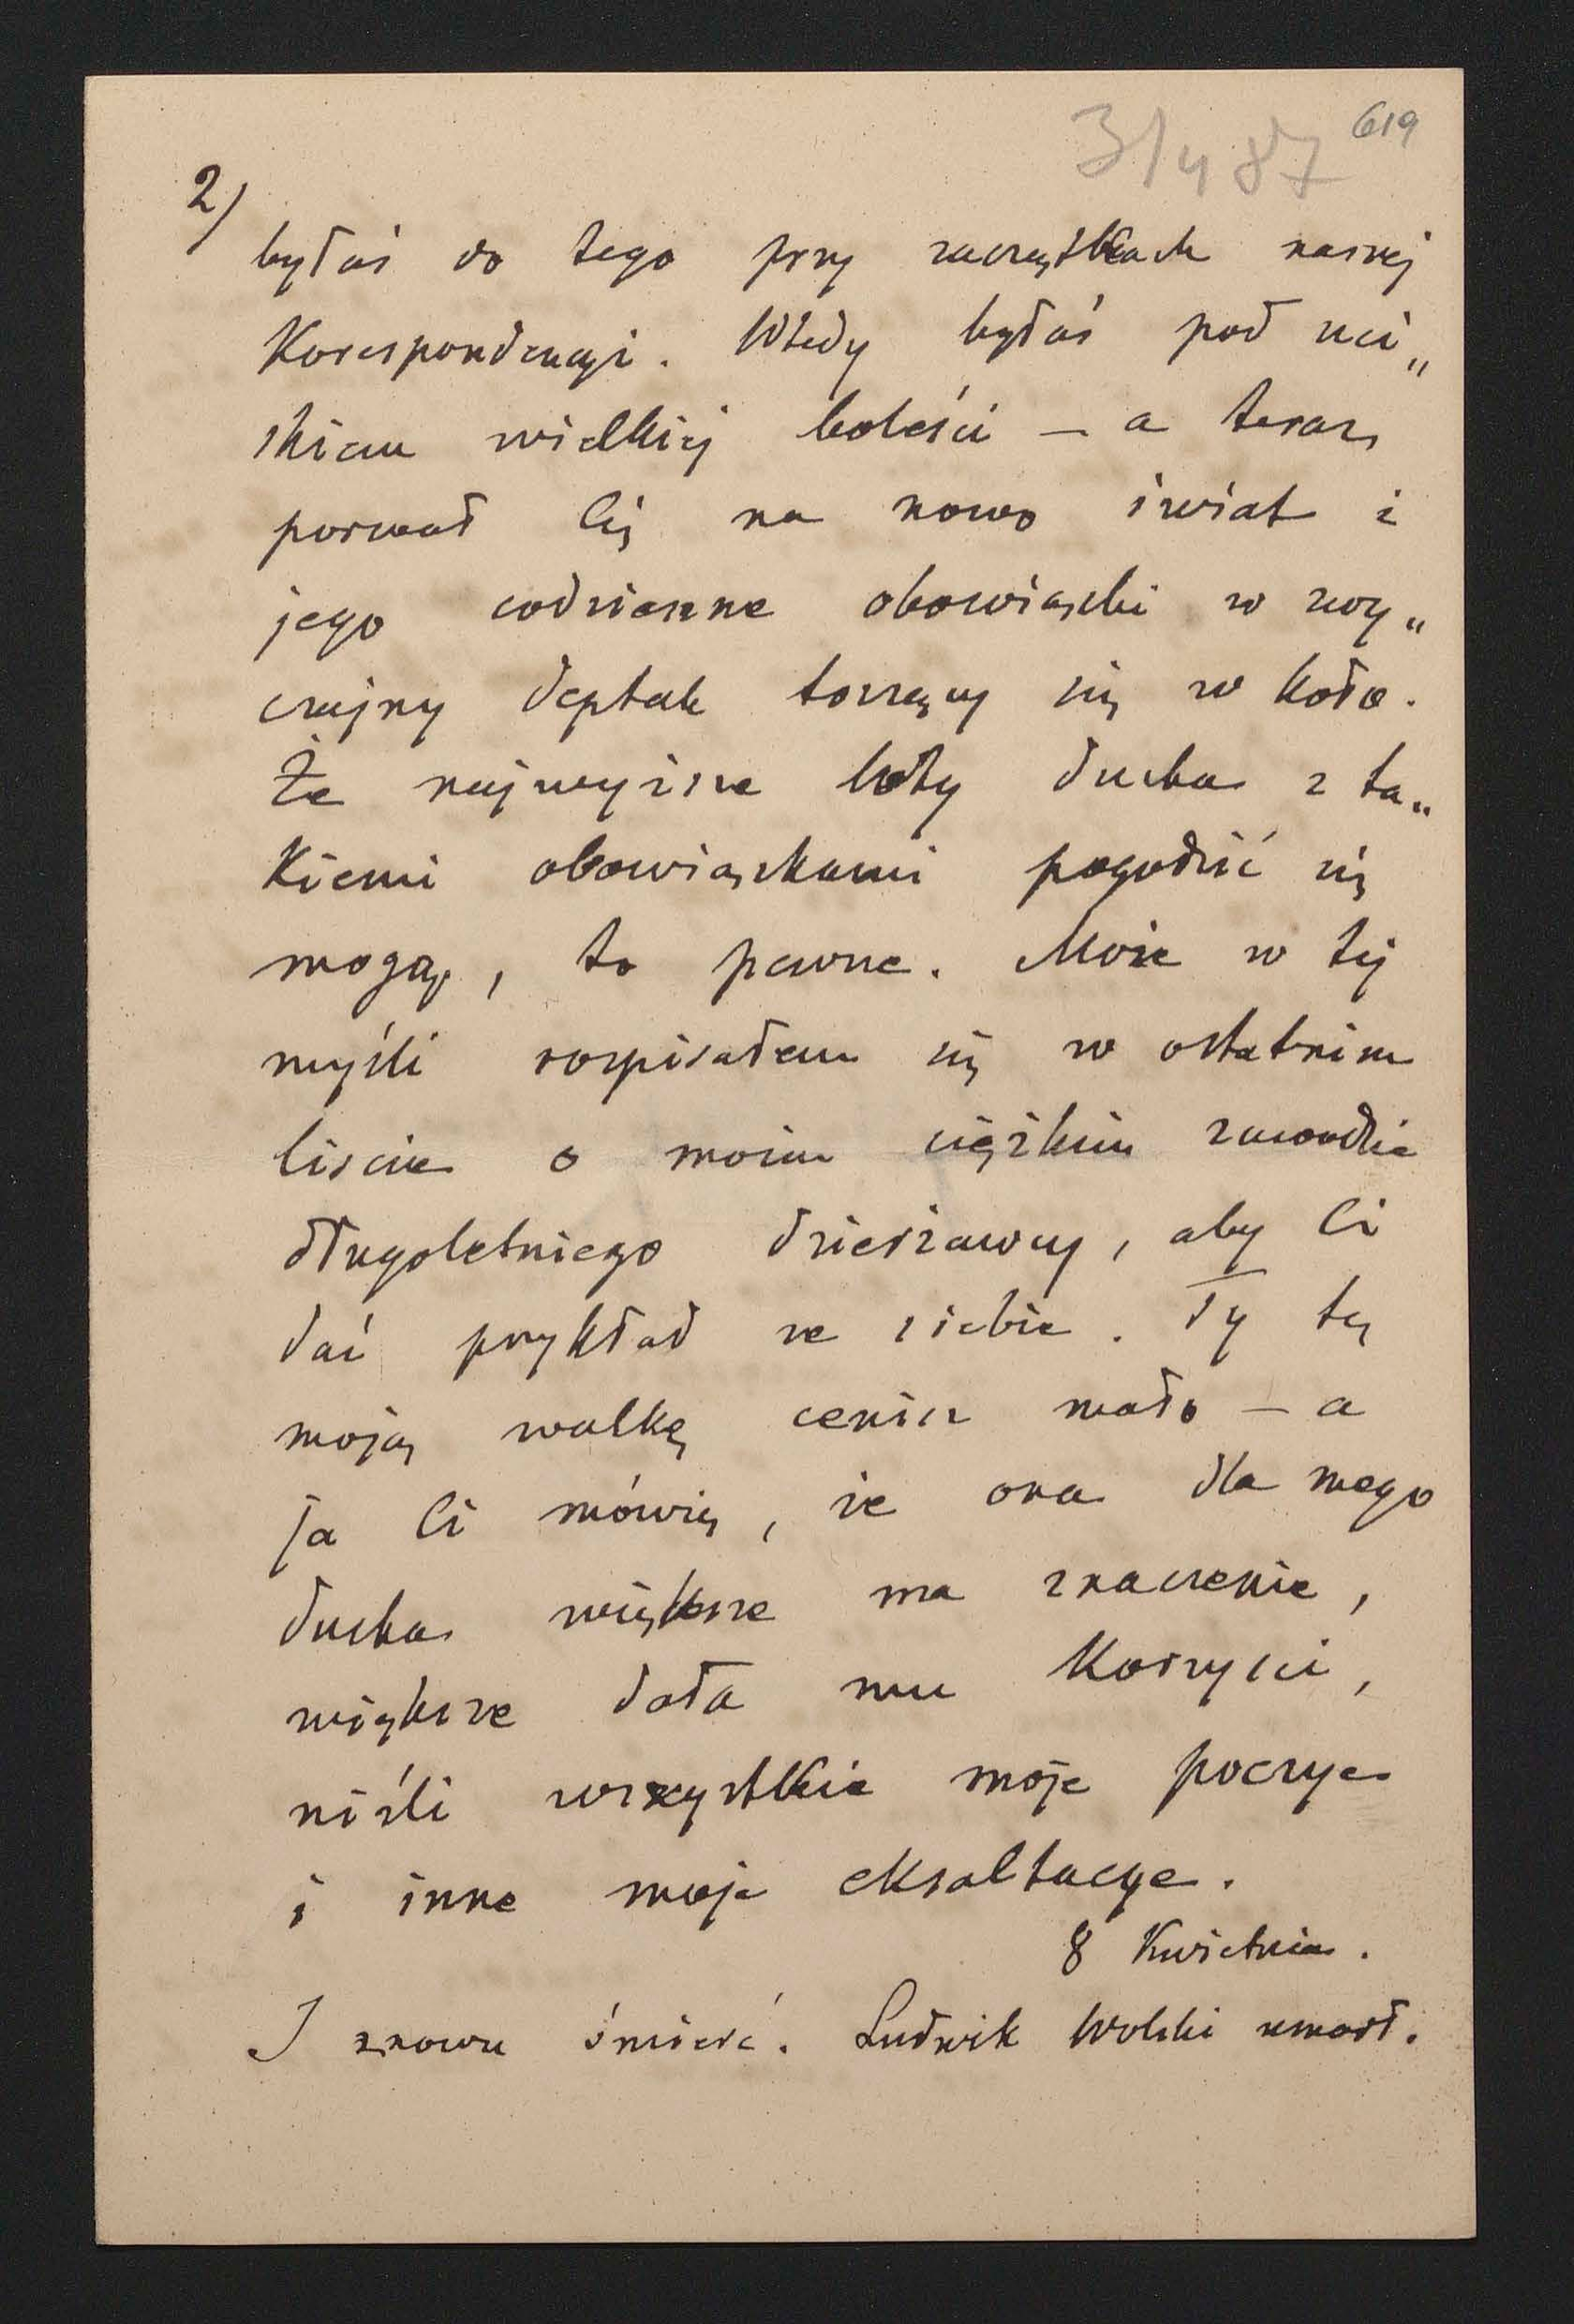 619
31/4 87
2)
byłaś do tego przy zaczątkach naszej
Korespondencyi. Wtedy byłaś pod uci„
skiem wielkiej boleści – a teraz
porwał Cię na nowo świat i
jego codzienne obowiązki w zwy„
czajny deptak toczący się w koło.
Że najwyższe loty ducha z ta„
Kiemi obowiązkami pogodzić się
mogą, to pewne. Może w tej
myśli rozpisałem się w ostatnim
liscie o moim ciężkim zawodzie
długoletniego dzierżawcy, aby Ci
dać przykład ze siebie. Ty tę
moją walkę cenisz mało – a
ja Ci mówię, że ona dla mego
ducha większe ma znaczenie,
większe dała mu Korzyści,
niśli wszystkie moje poezye
i inne moje eksaltacye.
8 Kwietnia.
I znowu śmierć. Ludwik Wolski umarł.